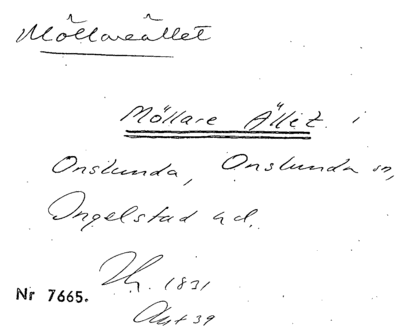 Möllareället
Möllare Ället i
Onslunda, Onslunda sn,
Ingelstad hd.
Th. 1831
Nr 7665.
Akt 39